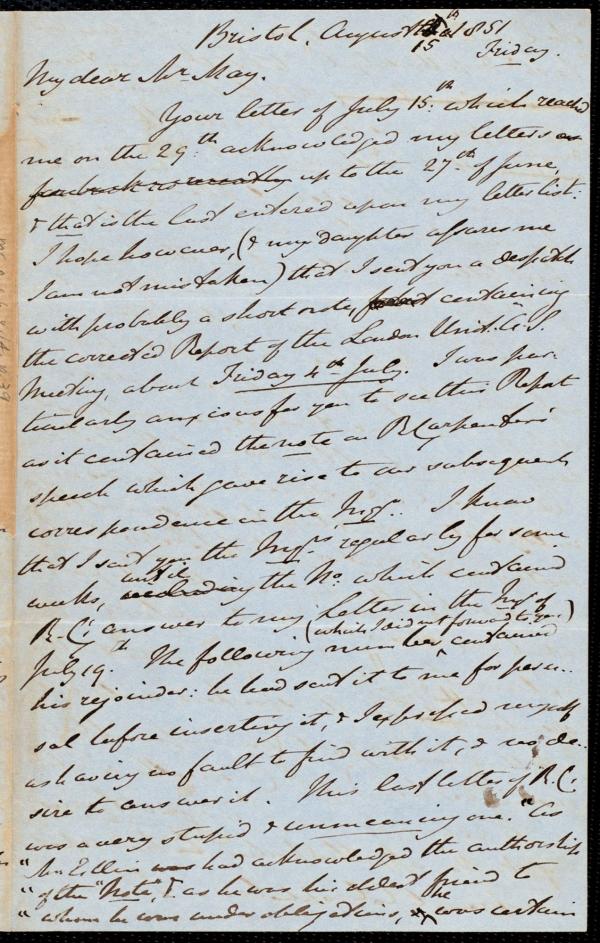 Bristol, August 15th 1851
Friday.
My dear Mr. May.
Your letter of July 15th which reached
me on the 29th acknowledged my letters
up to the 27th of June,
& that is the last entered upon my letter list:
I hope however, (& my daughter assures me
I am not mistaken) that I sent you a despatch
with probably a short note, containing
the corrected Report of the London Unit. A. S.
Meeting, about Friday 4th July. I was par-
ticularly anxious for you to see this Report
as it contained the note on R. Carpenter's
speech which gave rise to our subsequent
correspondence in the Inqr. I know
that I sent you the Inqrs. regularly for some
weeks, until the No. which contained
R. C.'s answer to my Letter in the Inqr. of
July 19th (which I did not forward to you.)
The following number contained
his rejoinder: he had sent it to me for peru-
sal before inserting it, & I expressed myself
as having no fault to find with it, & no de-
sire to answer it. This last letter of R. C.'s
was a very stupid & unmeaning one. "As
"Mr. Estlin had acknowledged the authorship
"of the "Note", & as he was his eldest friend to
"whom he was under obligations, he was certain